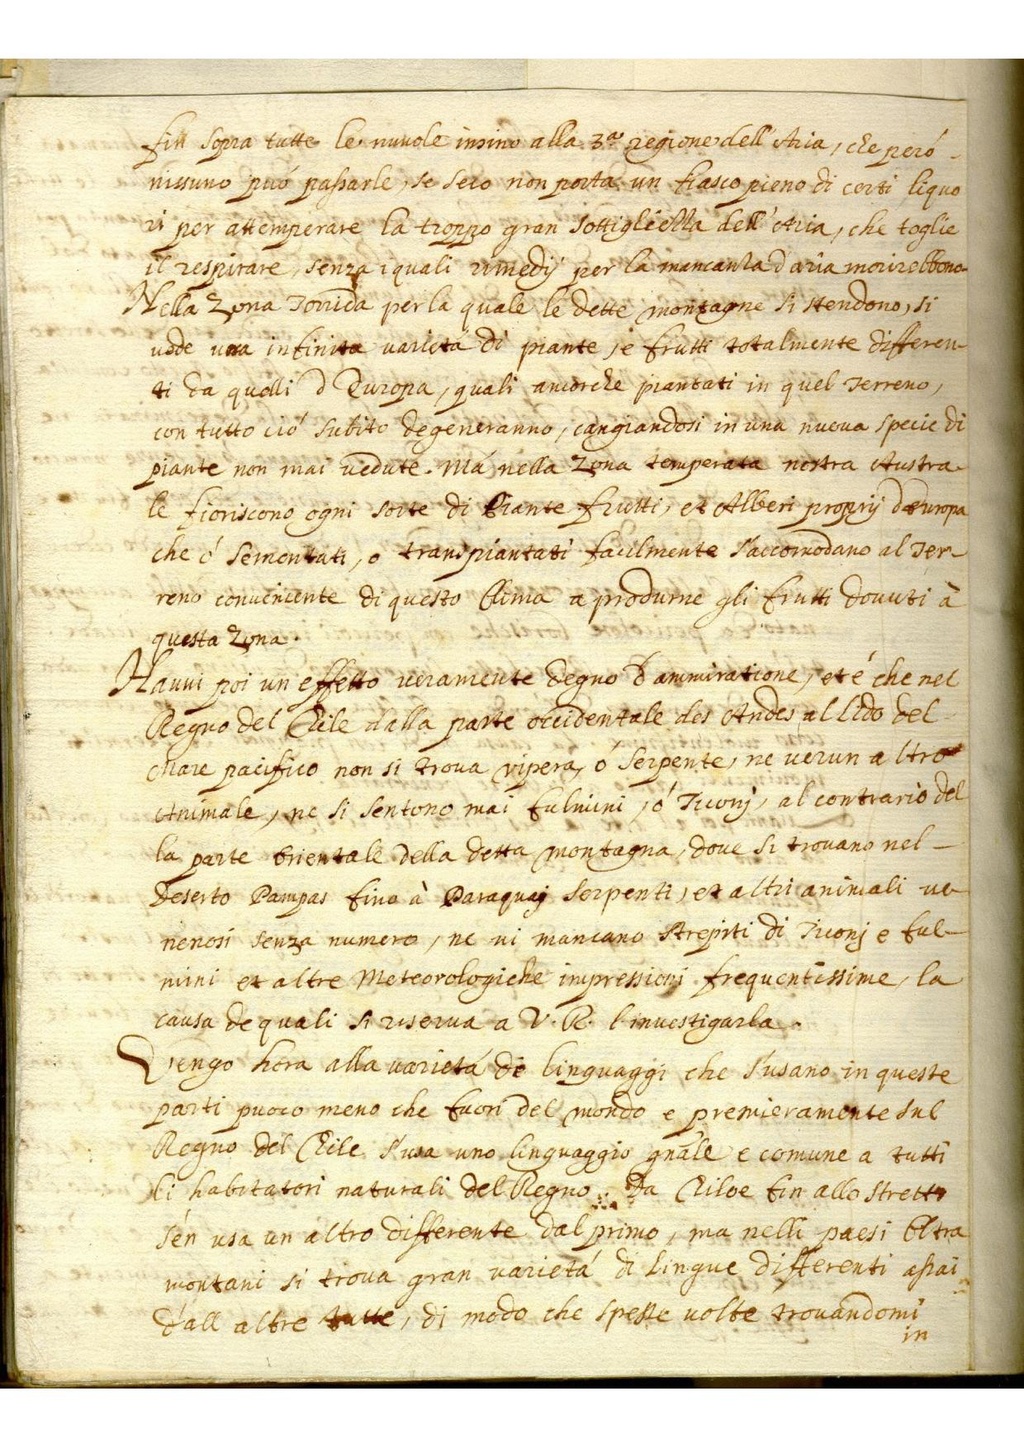 fin sopra tutte le nuuole insino alla 3ª regione dell'Aria, che peró
nissuno puó passarle, se seco non porta un fiasco pieno di certi liquo
ri per attemperare la troppo gran sottigliezza dell'Aria, che toglie
il respirare, senza i quali rimedij per la mancanza d'aria morirebbono
Nella Zona Torrida per la quale le dette montagne si stendono, si
vede una infinita varietá di piante, e frutti totalmente differen-
ti da quelli d'Europa, quali ancorche piantati in quel Terreno,
con tutto ció subito degeneranno, cangiandosi in una nuova specie di
piante non mai vedute. Má nella Zona temperata nostra Austra-
le fioriscono ogni sorte di Piante frutti, et Alberi proprij d'europa
che ó sementati, o transpiantati facilmente s'accomodano al Ter-
reno conveniente di questo Clima a produrne gli frutti dovuti à
questa Zona.
Havvi poi un effetto veramente degno d'ammiratione, et é che nel
Regno del Chile dalla parte occidentale des Andes al Lido del
Mare pacifico non si trova vipera, ó serpente, ne verun altro
Animale, ne si sentono mai fulmini, ó Tuonj, al contrario del
la parte orientale della detta montagna, dove si trovano nel-
Deserto Pampas fino à Paraquaj serpenti, et altri animali ve-
nenosi senza numero, ne vi mancano strepiti di Tuonj e ful-
mini et altre Meteorologiche impressioni frequentissime, la
causa de quali si riserva a V. R. l'investigarla.
Vengo hora alla varietá de linguaggi che s'usano in queste
parti puoco meno che fuori del mondo e premieramente sul
Regno del Chile s'usa uno linguaggio gnãle e comune a tutti
li habitatori naturali del Regno. Da Chiloe fin allo stretto
sén usa un altro differente dal primo, ma nelli paesi oltra
montani si trova gran varietá di lingue differenti assai
dall altre tutte, di modo che spesse volte trovandomi
in